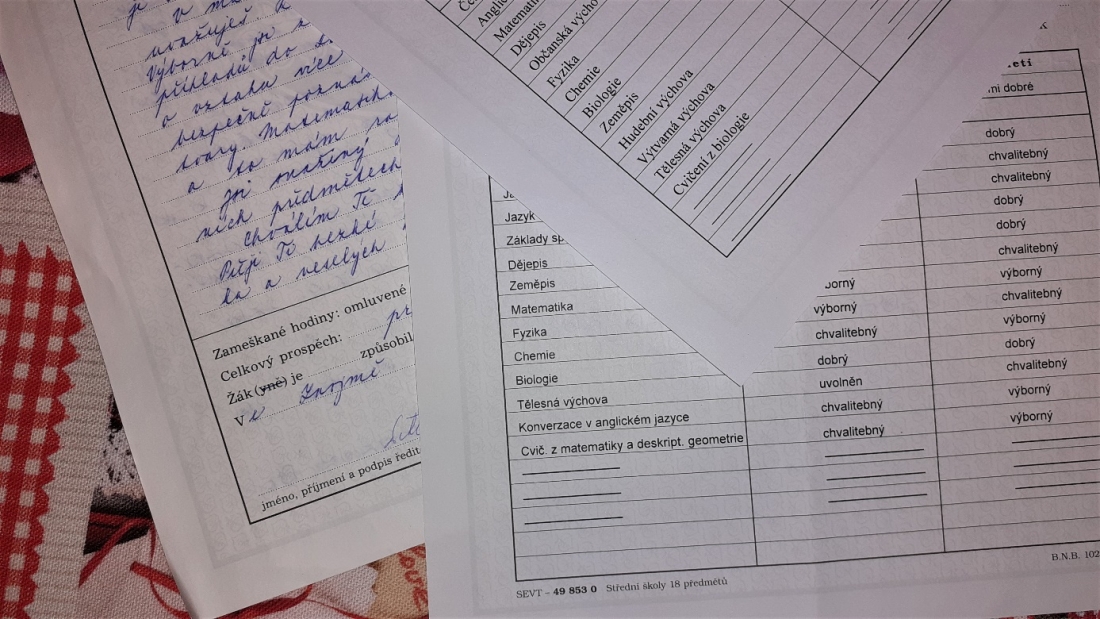 v
uvažuješ a
Výborně jsi
příkladů do
o vztahu více
bezpečně
tvary.
a to mám
jsi
předmětech
Chválím Tě
Přeji Ti hezké
a veselých
Zameškané hodiny: omluvené
Celkový prospěch:
Žák (yně) je způsobil
V Znojmě
jméno, příjmení a podpis
Matemat
Dějepis
Občanská výcho
Fyzika
Chemie
Biologie
Zeměpis
Hudební výchova
Výtvarná výchova
Tělesná výchova
Cvičení z biologie
letí
ní dobré
dobrý
chvalitebný
Jazyk chvalitebný
Základy sp dobrý
Dějepis dobrý
Zeměpis borný chvalitebný
Matematika výborný výborný
Fyzika chvalitebný chvalitebný
Chemie dobrý výborný
Biologie uvolněn dobrý
Tělesná výchova chvalitebný chvalitebný
Konverzace v anglickém jazyce chvalitebný výborný
Cvič. z matematiky a deskript. geometrie výborný
SEVT – 49 853 0 Střední školy 18 předmětů
B.N.B. 102